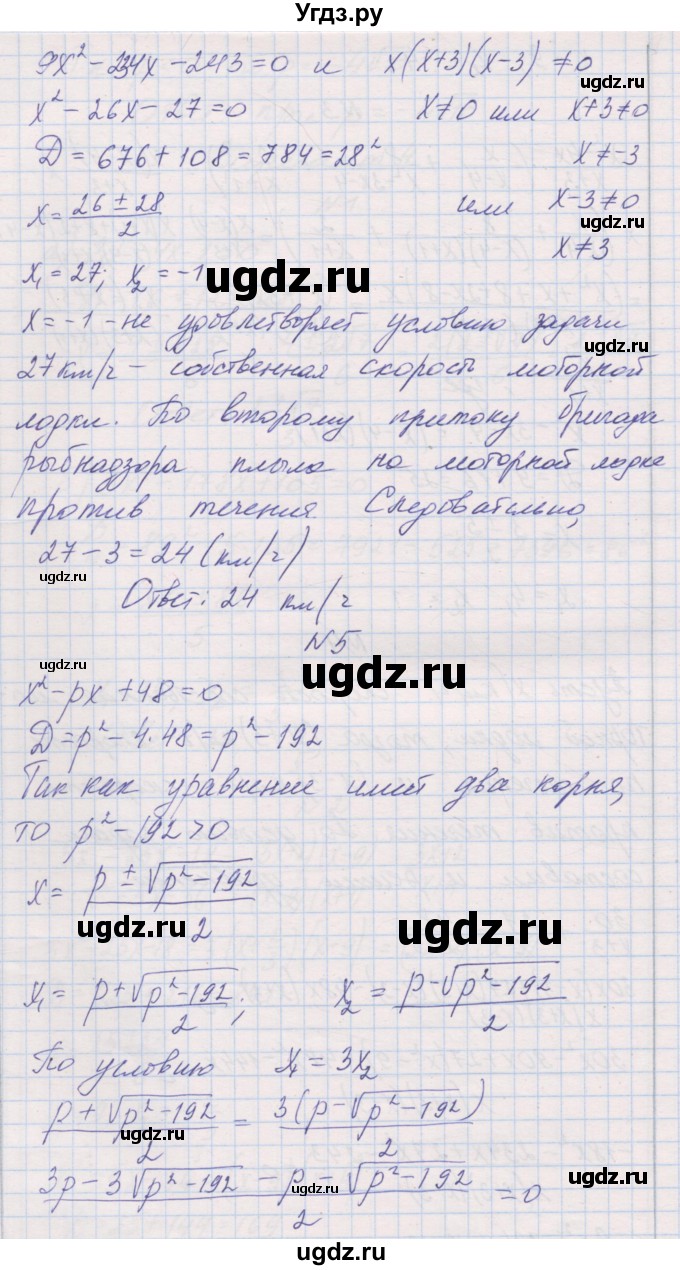 Угдз.ру
9x² - 234x - 243 = 0 и x(x+3)(x-3) ≠ 0
ugdz.ru
x² - 26x - 27 = 0 x ≠ 0 или x+3 ≠ 0
ugdz.ru
Д = 676 + 108 = 784 = 28² x ≠ -3
x = (26 ± 28)/2 или x-3 ≠ 0
ugdz.ru
x ≠ 3
x₁ = 27; x₂ = -1
ugdz.ru
x = -1 - не удовлетворяет условию задачи
ugdz.ru
27 км/ч - собственная скорость моторной
лодки. По второму притоку бригада
рыбнадзора плыла на моторной лодке
против течения Следовательно,
27 - 3 = 24 (км/ч)
ugdz.ru
Ответ: 24 км/ч
N5
ugdz.ru
ugdz.ru
x² - px + 48 = 0
Д = p² - 4·48 = p² - 192
Так как уравнение имеет два корня,
то p² - 192 > 0
x = (p ± √(p² - 192))/2
ugdz.ru
ugdz.ru
x₁ = (p + √(p² - 192))/2; x₂ = (p - √(p² - 192))/2
По условию x₁ = 3x₂
(p + √(p² - 192))/2 = 3(p - √(p² - 192))/2
ugdz.ru
ugdz.ru
(3p - 3√(p² - 192) - p - √(p² - 192))/2 = 0
ugdz.ru
ugdz.ru